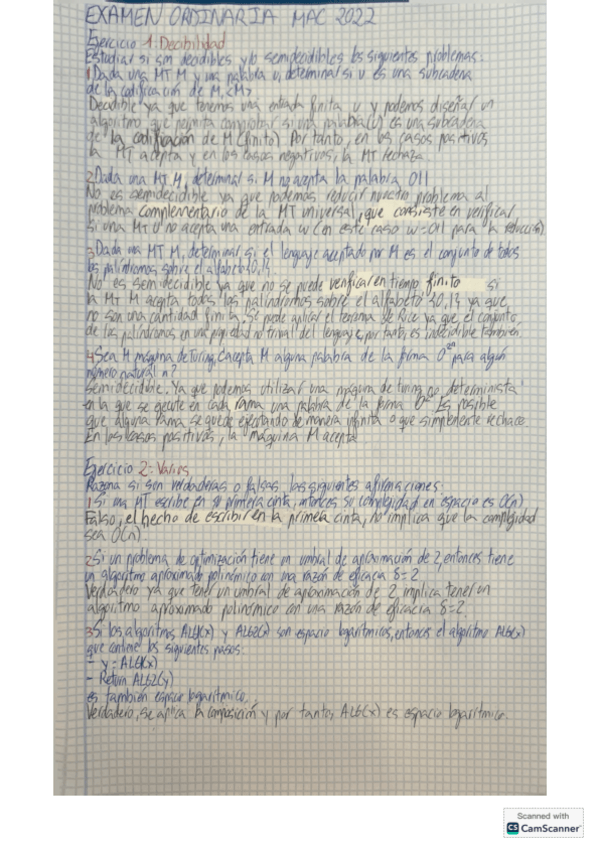 EXAMEN ORDINARIA MAC 2022
Ejercicio 1. Decibilidad
Estudiar si son decidibles y/o semidecidibles los siguientes problemas:
1 Dada una MT M y una palabra u, determinal si u es una subcadena
de la codificación de M, <M>
Decidible ya que tenemos una entrada finita u y podemos diseñar un
algoritmo que permita comprobar si una palabra (u) es una subcadena
de la codificación de M (finito) Por tanto, en los casos positivos
la MT acepta y en los casos negativos, la MT rechaza.
2 Dada una MT M, determinal si M no acepta la palabra 011
No es semidecidible ya que podemos reducir nuestro problema al
problema complementario de la MT universal, que consiste en verificar
si una MT U no acepta una entrada w (en este caso w=011 para la reducción)
3 Dada una MT M, determinal si el lenguaje aceptado por M es el conjunto de todos
los palíndromos sobre el alfabeto {0,1}
No es semidecidible ya que no se puede verificar en tiempo finito si
la MT M acepta todos los palíndromos sobre el alfabeto {0,1} ya que
no son una cantidad finita. Se puede aplicar el teorema de Rice ya que el conjunto
de los palíndromos en una propiedad no trivial del lenguaje, por tanto, es indecidible también.
4 Sea M máquina de Turing, ¿acepta M alguna palabra de la forma 0^2n para algún
número natural n?
Semidecidible. Ya que podemos utilizar una máquina de turing no determinista
en la que se ejecute en cada rama una palabra de la forma Es posible
que alguna rama se quede ejecutando de manera infinita o que simplemente rechace.
En los casos positivos, la máquina M acepta
Ejercicio 2: Varios
Razona si son verdaderas o falsas las siguientes afirmaciones:
1 Si una MT escribe en su primera cinta, entonces su complejidad en espacio es O(n)
Falso, el hecho de escribir en la primera cinta, no implica que la complejidad
sea O(n)
2 Si un problema de optimización tiene un umbral de aproximación de 2, entonces tiene
un algoritmo aproximado polinómico con una razón de eficacia δ=2
Verdadero ya que tener un umbral de aproximación de 2, implica tener un
algoritmo aproximado polinómico con una razón de eficacia δ=2
3 Si los algoritmos ALG1(x) y ALG2(x) son espacio logarítmicos, entonces el algoritmo ALG(x)
que contiene los siguientes pasos:
- y = ALG1(x)
- Return ALG2(y)
es también espacio logarítmico.
Verdadero, se aplica la composición y por tanto, ALG(x) es espacio logarítmico.
Scanned with
CS CamScanner